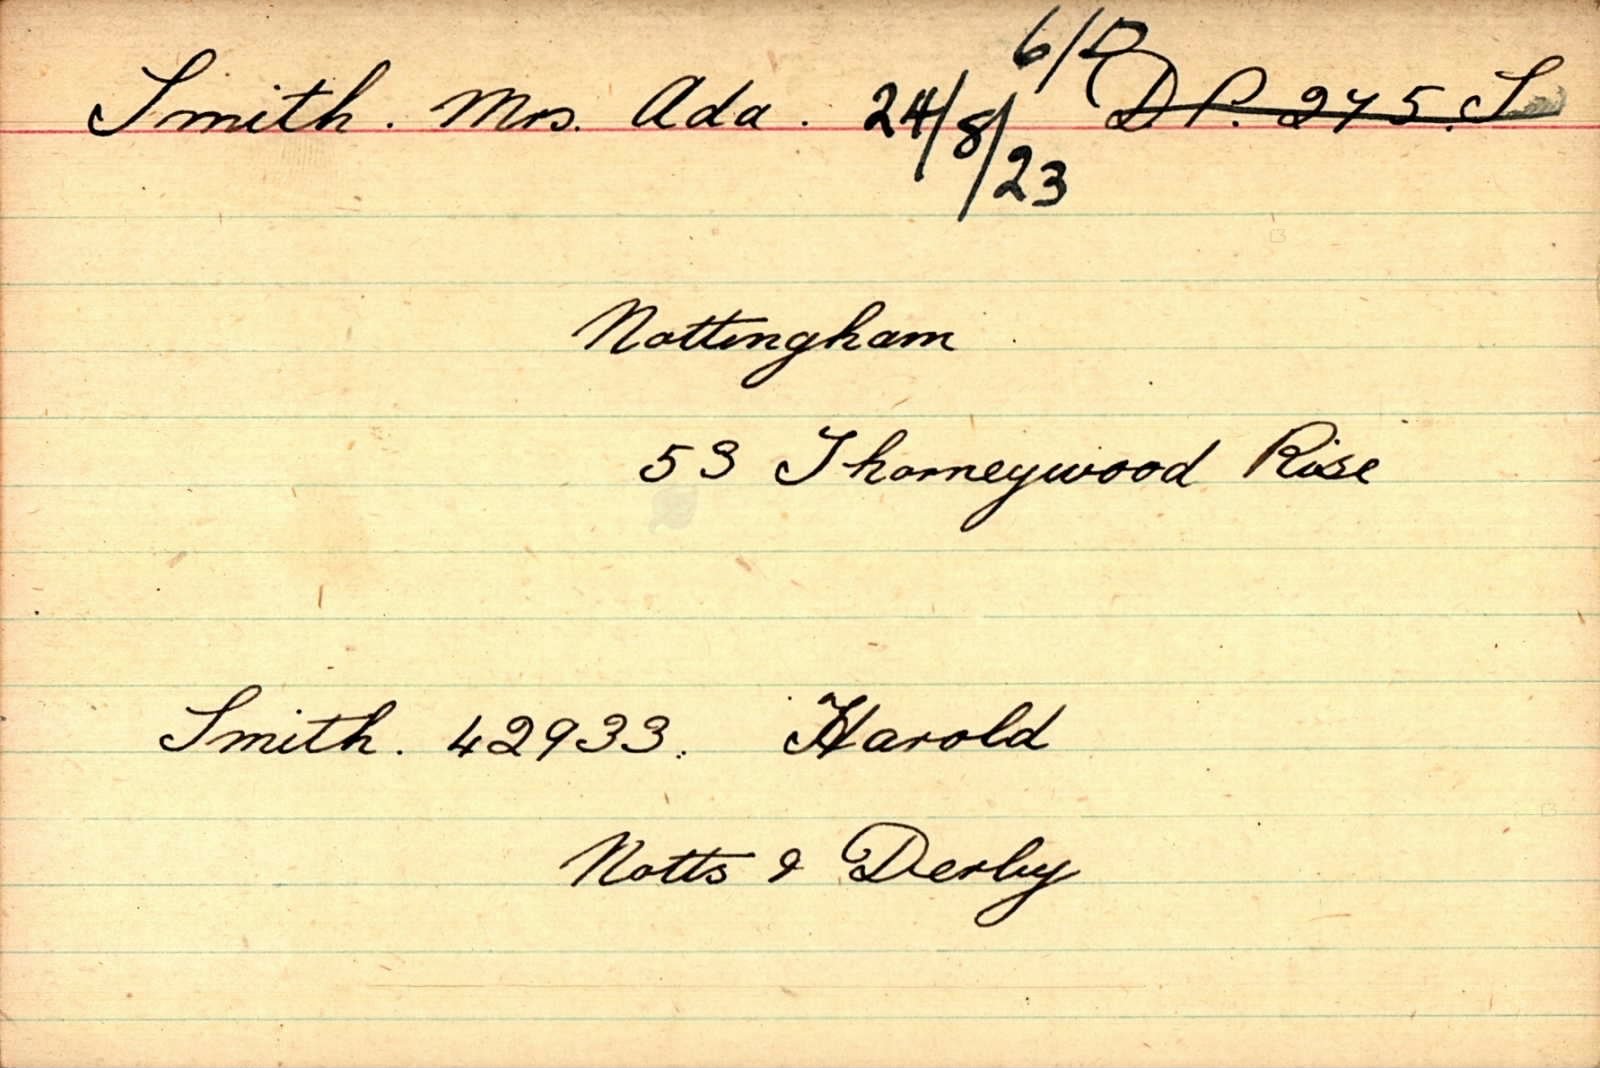 Smith. Mrs. Ada. 24/8/23 6/D D.P. 245. S
Nottingham
53 Thorneywood Rise
Smith. 42933. Harold
Notts & Derby